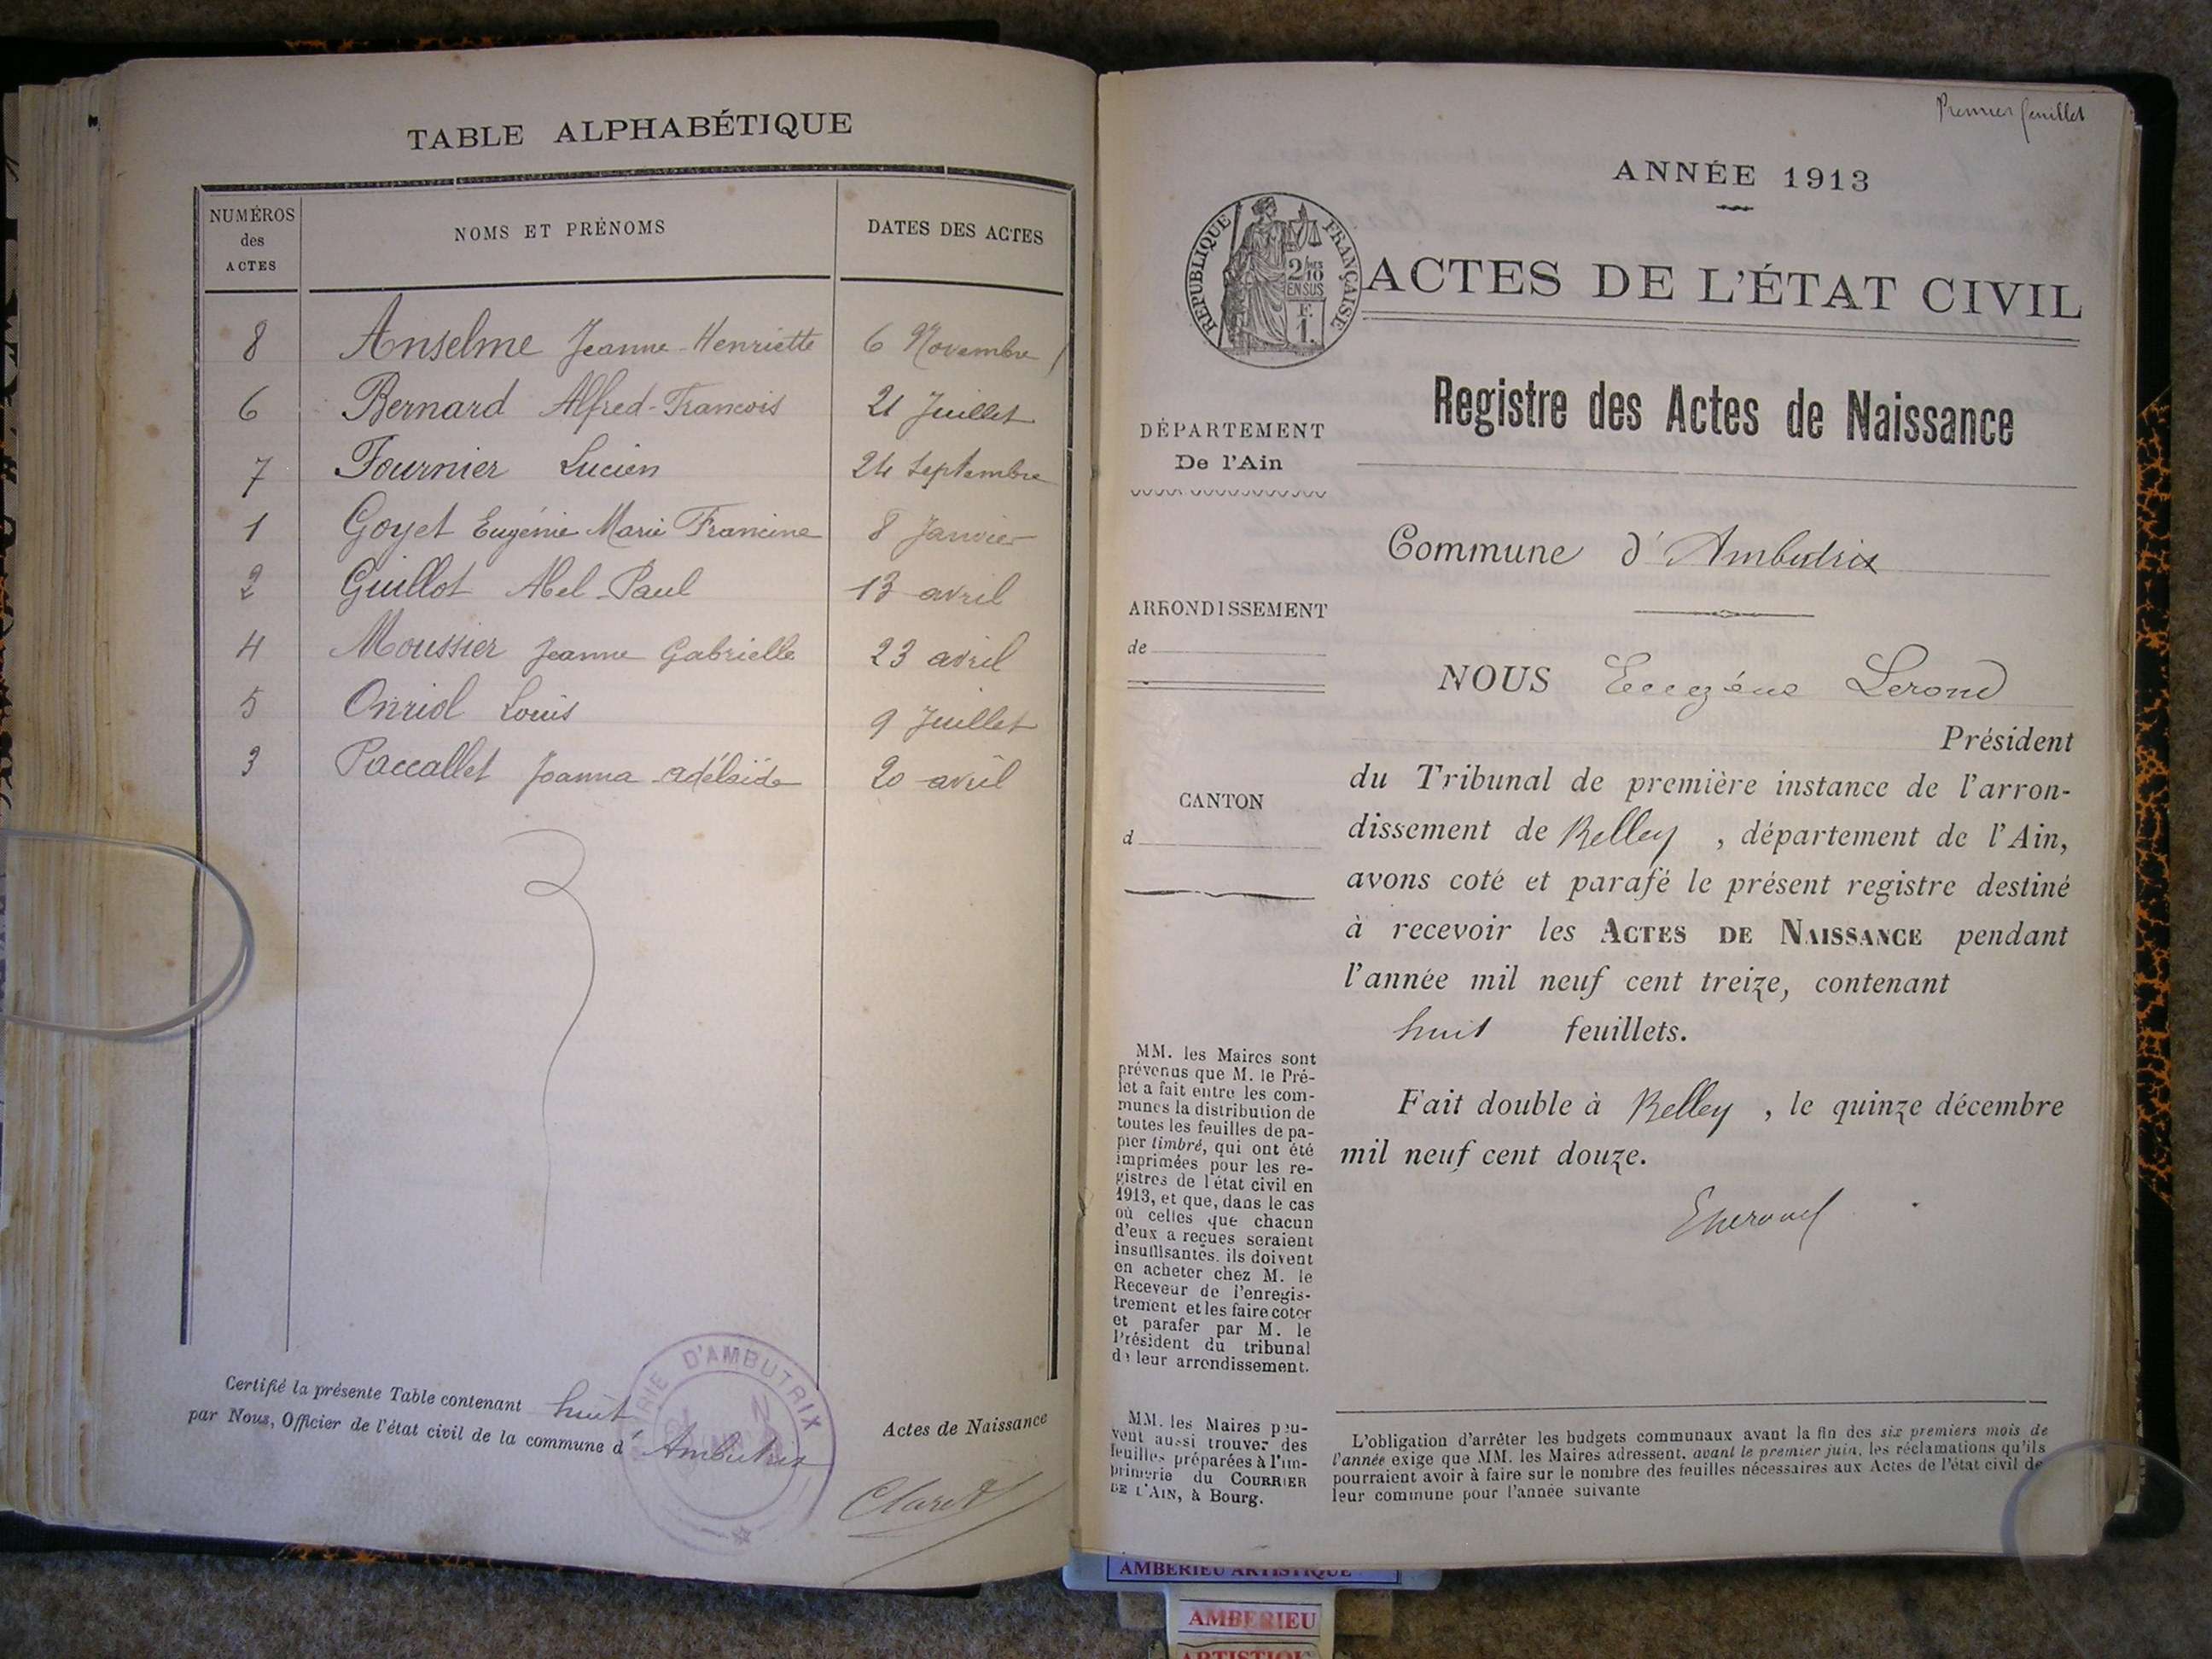 TABLE ALPHABÉTIQUE
NUMÉROS des ACTES NOMS ET PRÉNOMS DATES DES ACTES
8 Anselme Jeanne-Henriette 6 Novembre
6 Bernard Alfred-Francois 21 Juillet
7 Fournier Lucien 24 Septembre
1 Goyet Eugénie Marie Francine 8 Janvier
2 Guillot Abel Paul 13 avril
4 Moussier Jeanne Gabrielle 23 avril
5 Onriol Louis 9 Juillet
3 Paccallet Joanna adélaïde 20 avril
Certifié la présente Table contenant huit Actes de Naissance
par Nous, Officier de l'état civil de la commune d'Ambutrix
D'AMBUTRIX
Claret
Premier feuillet
ANNÉE 1913
RÉPUBLIQUE FRANÇAISE
2/10
EN SUS
F.
1.
ACTES DE L'ÉTAT CIVIL
Registre des Actes de Naissance
DÉPARTEMENT
De l'Ain
Commune d'Ambutrix
ARRONDISSEMENT
de
CANTON
d
NOUS Eugène Lerond
Président
du Tribunal de première instance de l'arron-
dissement de Belley, département de l'Ain,
avons coté et parafé le présent registre destiné
à recevoir les ACTES DE NAISSANCE pendant
l'année mil neuf cent treize, contenant
huit feuillets.
Fait double à Belley, le quinze décembre
mil neuf cent douze.
MM. les Maires sont
prévenus que M. le Pré-
fet a fait entre les com-
munes la distribution de
toutes les feuilles de pa-
pier timbré, qui ont été
imprimées pour les re-
gistres de l'état civil en
1913, et que, dans le cas
où celles que chacun
d'eux a reçues seraient
insuffisantes, ils doivent
en acheter chez M. le
Receveur de l'enregis-
trement et les faire coter
et parafer par M. le
Président du tribunal
de leur arrondissement.
MM. les Maires peu-
vent aussi trouver des
feuilles préparées à l'im-
primerie du COURRIER
DE L'AIN, à Bourg.
L'obligation d'arrêter les budgets communaux avant la fin des six premiers mois de
l'année exige que MM. les Maires adressent, avant le premier juin, les réclamations qu'ils
pourraient avoir à faire sur le nombre des feuilles nécessaires aux Actes de l'état civil de
leur commune pour l'année suivante
AMBERIEU ARTISTIQUE
AMBERIEU